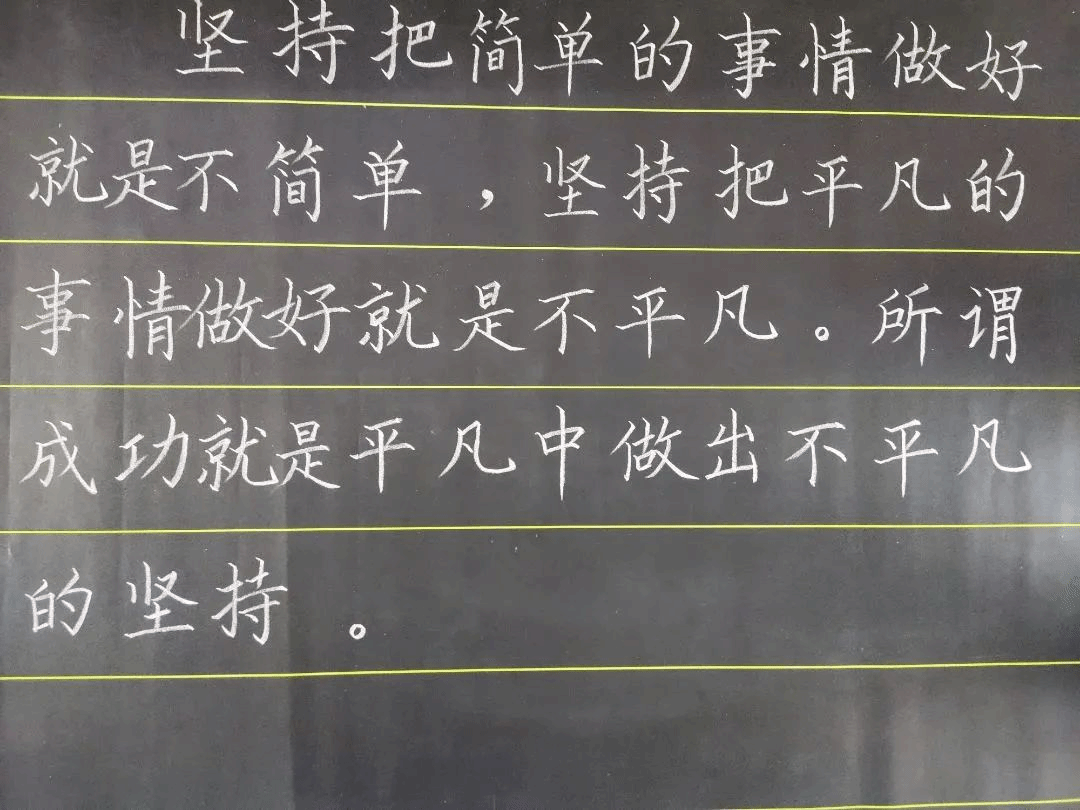 坚持把简单的事情做好
就是不简单，坚持把平凡的
事情做好就是不平凡。所谓
成功就是平凡中做出不平凡
的坚持。